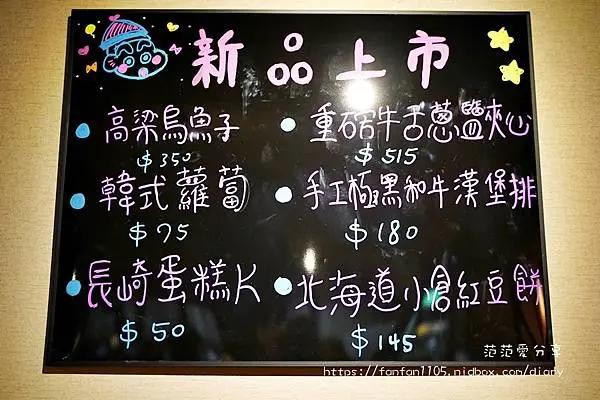 新品上市
高梁烏魚子
$350
重磅牛舌蔥鹽夾心
$515
韓式蘿蔔
$75
手工極黑和牛漢堡排
$180
長崎蛋糕K
$50
北海道小倉紅豆餅
$145
范范愛分享
https://fanfan1105.nidbox.com/diary